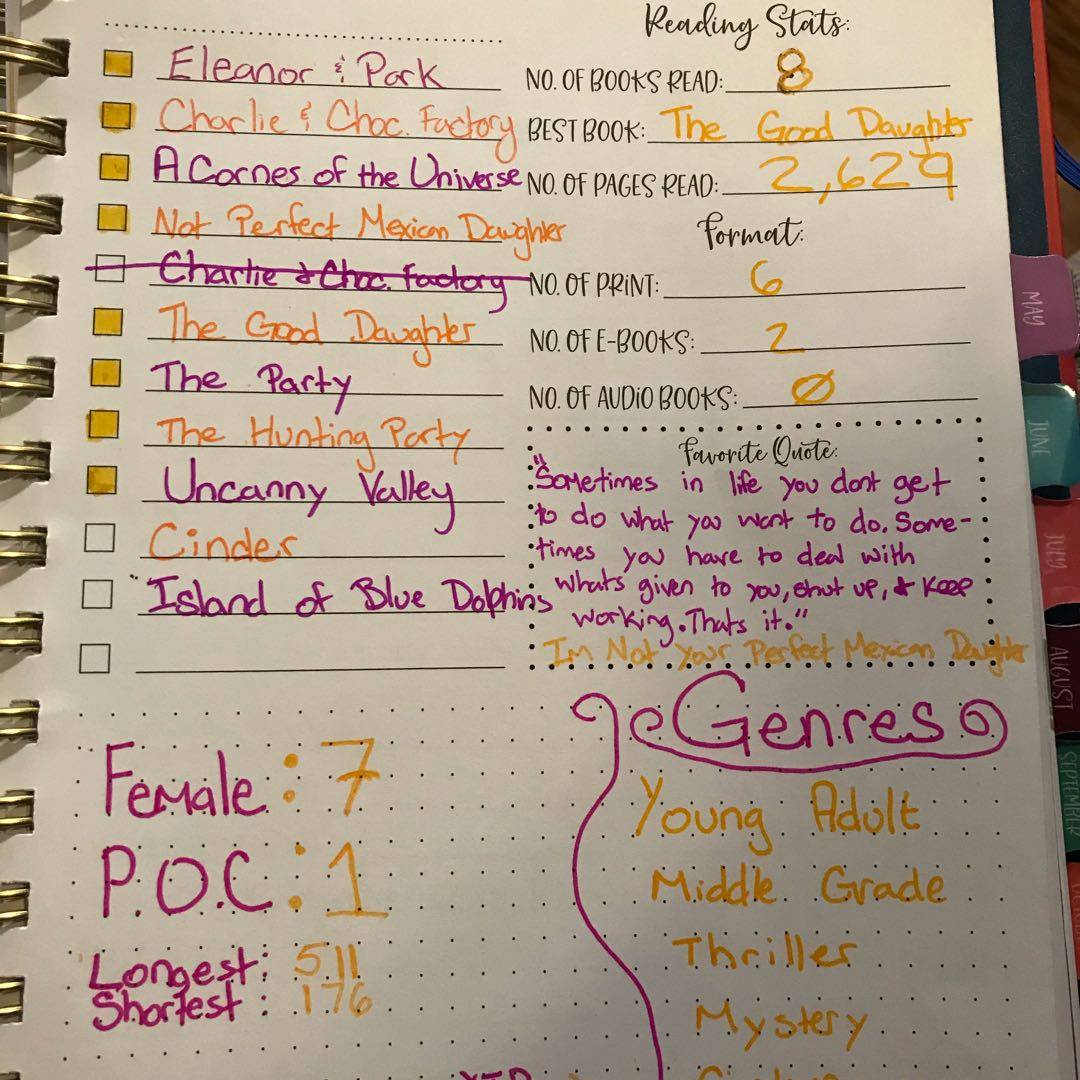 Eleanor & Park
Charlie & Choc. Factory
A Cornes of the Universe
Not Perfect Mexican Daughter
Charlie & Choc. Factory
The Good Daughter
The Party
The Hunting Party
Uncanny Valley
Cinder
Island of Blue Dolphins
Reading Stats:
NO. OF BOOKS READ: 8
BEST BOOK: The Good Daughter
NO. OF PAGES READ: 2,629
Format:
NO. OF PRINT: 6
NO. OF E-BOOKS: 2
NO. OF AUDIO BOOKS: 0
Favorite Quote:
"Sometimes in life you dont get
to do what you want to do. Some-
times you have to deal with
whats given to you, shut up, & keep
working. Thats it."
Im Not Your Perfect Mexican Daughter
Female: 7
P.O.C: 1
Longest: 511
Shortest: 176
Genres
Young Adult
Middle Grade
Thriller
Mystery
MAY
JUNE
JULY
AUGUST
SEPTEMBER